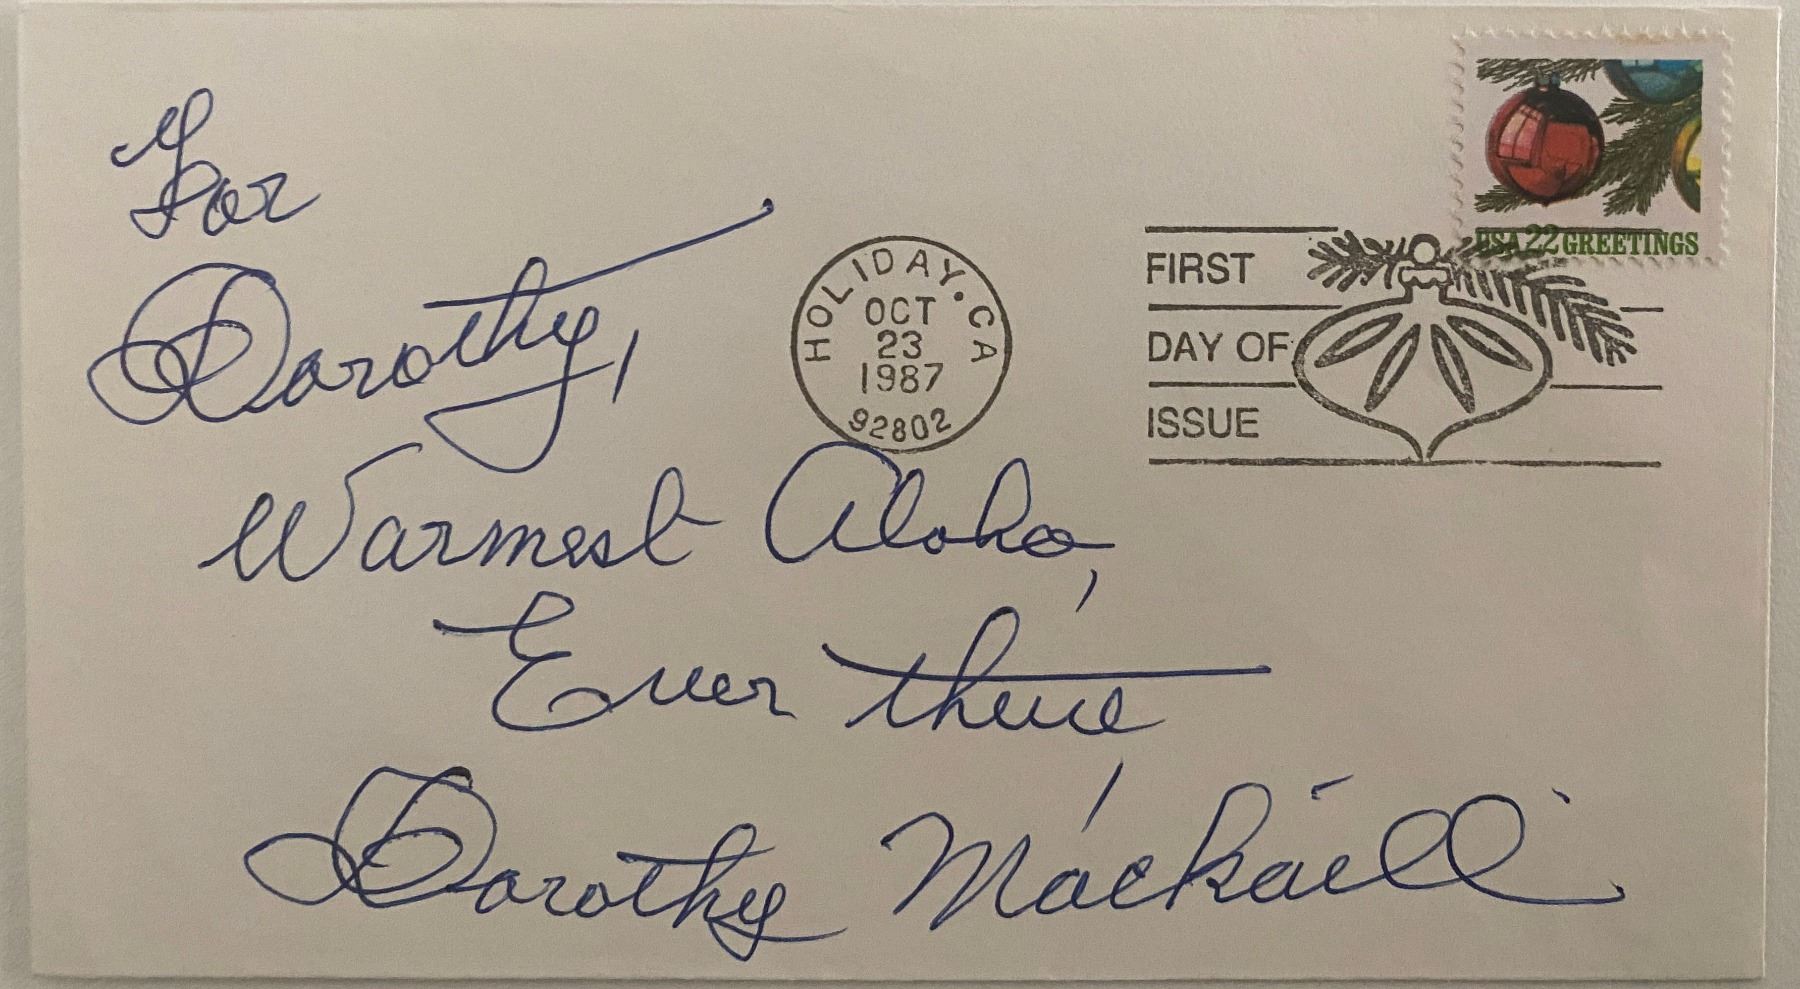 For
Dorothy,
Warmest Aloha,
Ever thine
Dorothy Mackaill
HOLIDAY, CA
OCT
23
1987
92802
FIRST
DAY OF
ISSUE
USA 22 GREETINGS